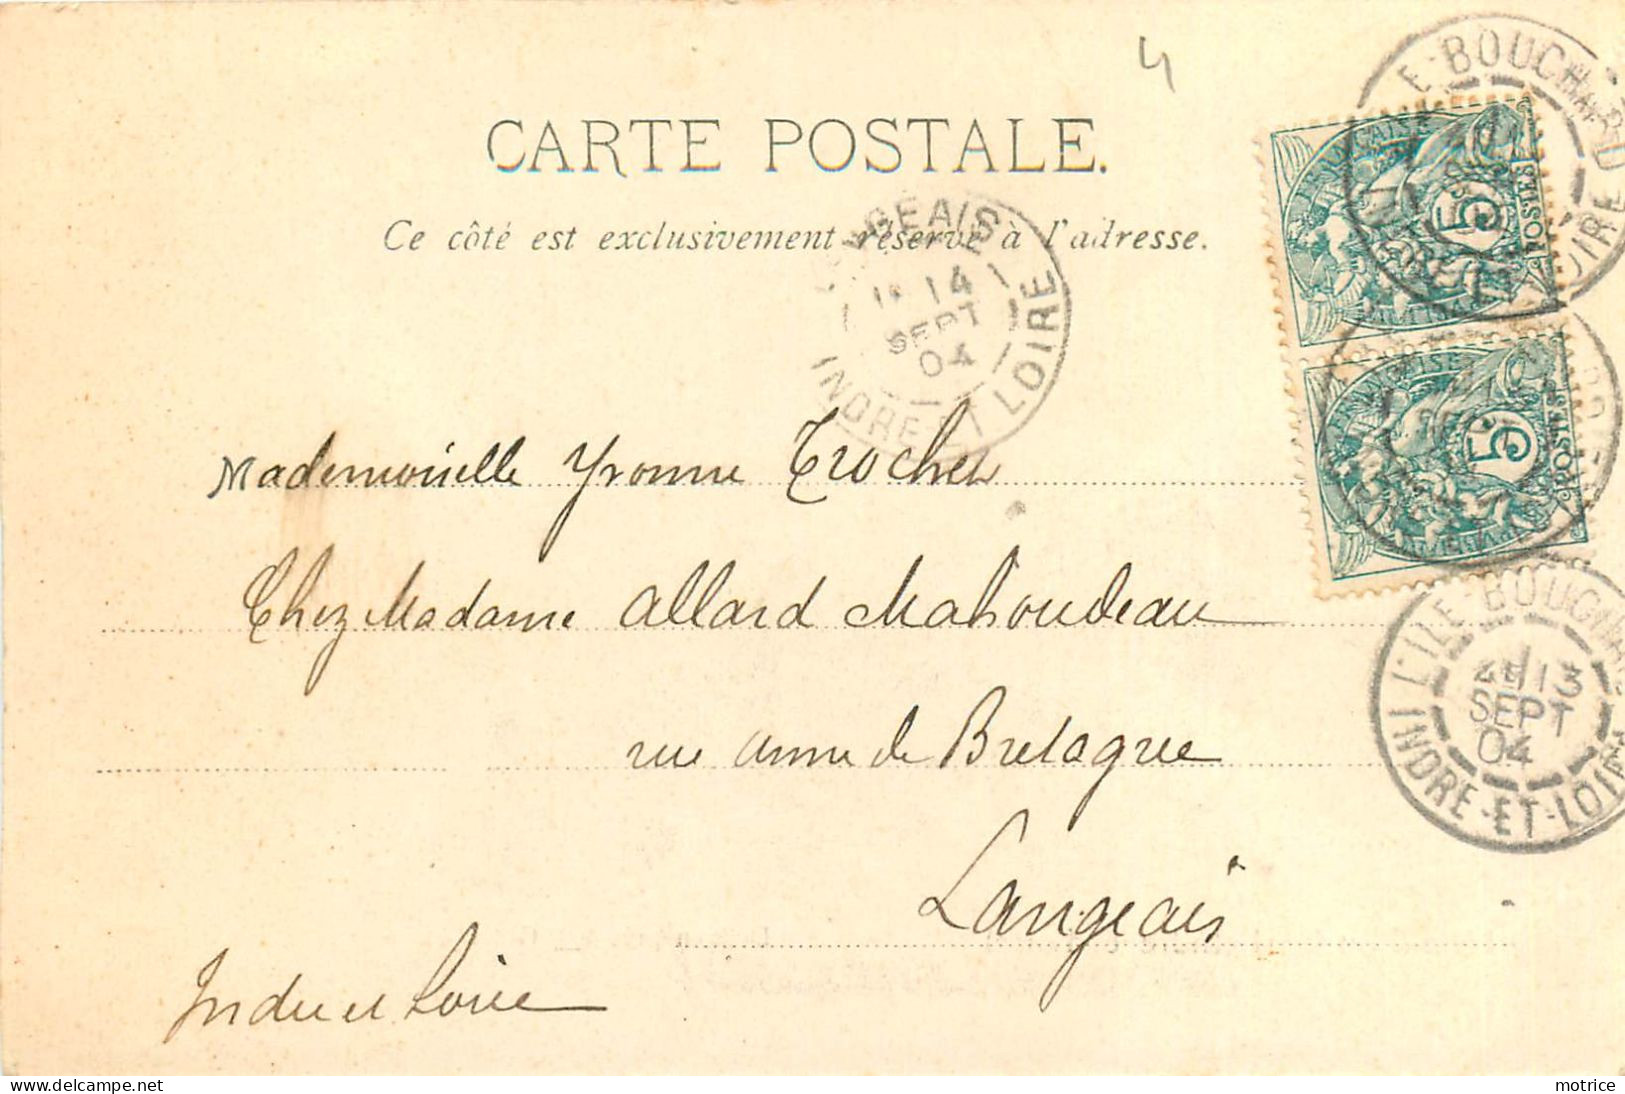 4
CARTE POSTALE.
Ce côté est exclusivement réservé à l'adresse.
LANGEAIS
14
SEPT
04
INDRE-ET-LOIRE
L'ILE-BOUCHARD
INDRE-ET-LOIRE
RÉPUBLIQUE FRANÇAISE
5
POSTES
FRANÇAISE
5
POSTES
Mademoiselle Yvonne Trocher
Chez Madame Allard Mahoudeau
rue anne de Bretagne
Langeais
Indre et Loire
L'ILE-BOUCHARD
2E 13
SEPT
04
INDRE-ET-LOIRE
https://www.delcampe.net
motrice